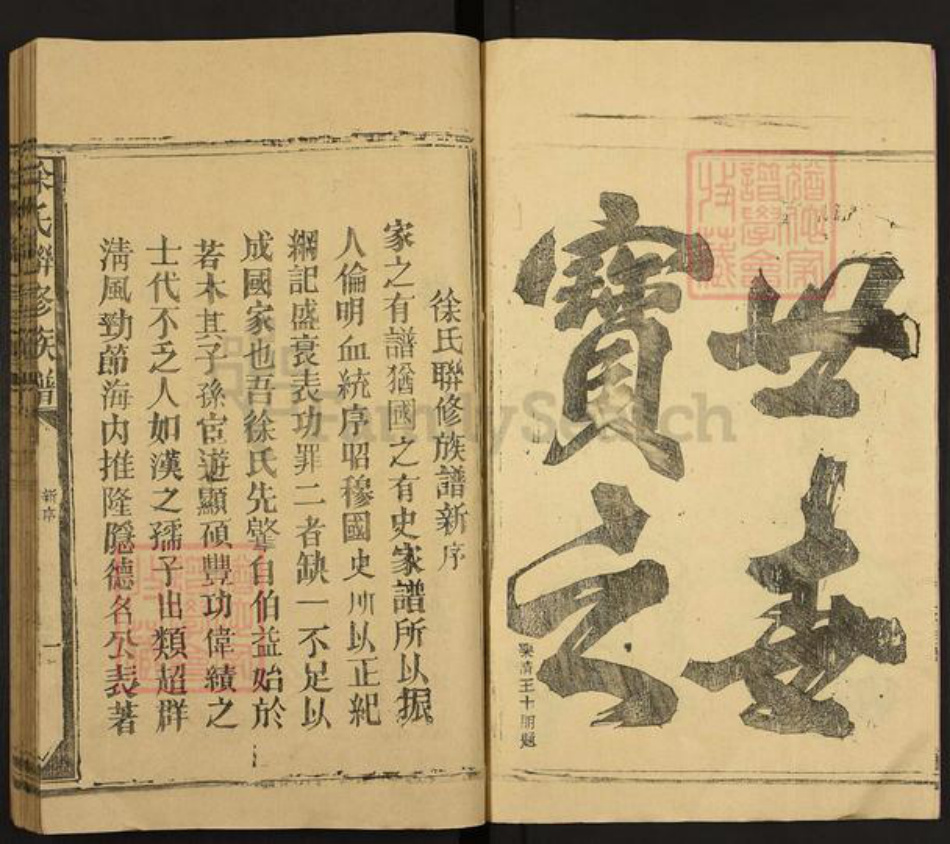 世
寶之
樂清王十朋題
徐氏聯修族譜新序
家之有譜猶國之有史家譜所以振
人倫明血統序昭穆國史所以正紀
綱記盛衰表功罪二者缺一不足以
成國家也吾徐氏先肇自伯益始於
若木其子孫宦遊顯碩豐功偉績之
士代不乏人如漢之孺子出類超群
清風勁節海内推隆隱德名公表著
徐氏聯修族譜
新序
一
FamilySearch